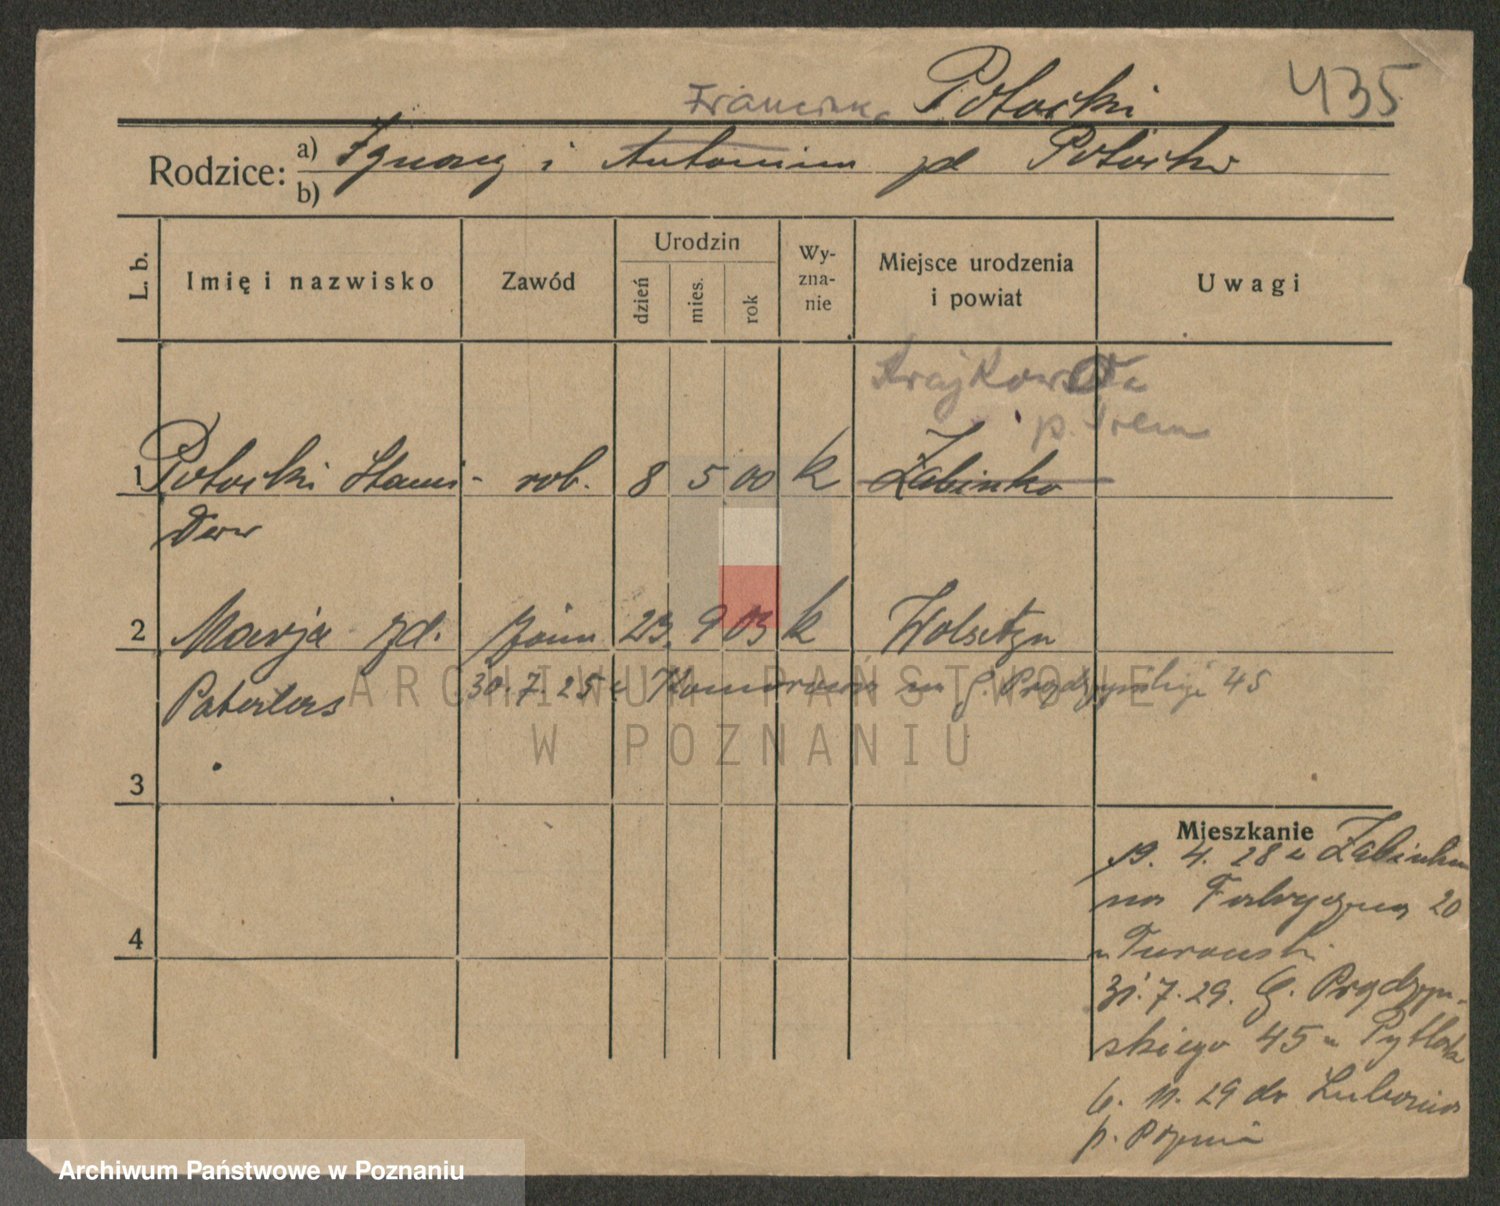 Potocki 435
Franciszka
Rodzice: a) Ignacy i Antonina zd Potocka
b)
L. b.
Imię i nazwisko
Zawód
Urodzin
dzień
mies.
rok
Wy-
zna-
nie
Miejsce urodzenia
i powiat
Uwagi
Krajkowo
p. Śrem
1 Potocki Stani- rob. 8 5 00 k Żabinko
sław
2 Marja zd. żona 23. 9 03 k Wolsztyn
30. 7. 25 z na G. Prądzyńskiego 45
3
4
Mieszkanie
19. 4. 28 z Żabinka
na Fabryczna 20
31. 7. 29. G. Prądzyń-
skiego 45
6. 11. 29 do Lubonia
p. Poznań
ARCHIWUM PAŃSTWOWE
W POZNANIU
Archiwum Państwowe w Poznaniu